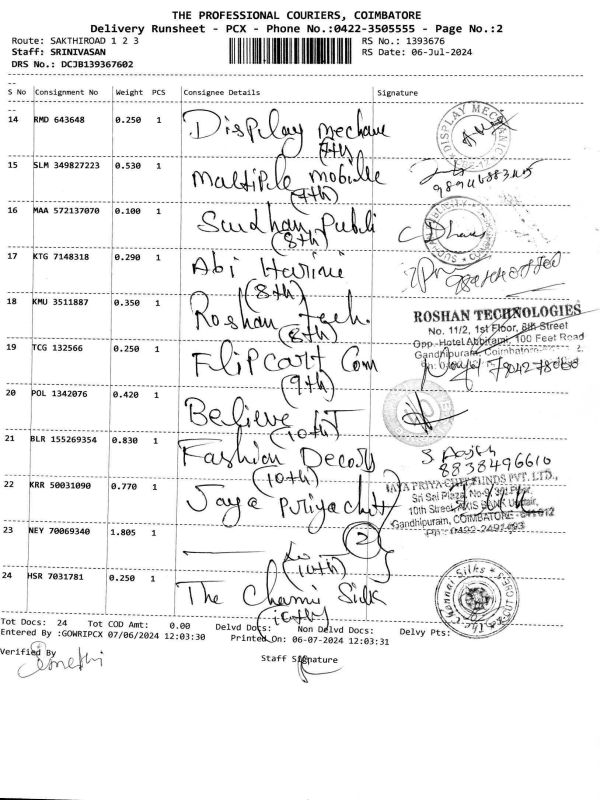 THE PROFESSIONAL COURIERS, COIMBATORE
Delivery Runsheet - PCX - Phone No.:0422-3505555 - Page No.:2
Route: SAKTHIROAD 1 2 3
RS No.: 1393676
Staff: SRINIVASAN
RS Date: 06-Jul-2024
DRS No.: DCJB139367602
S No Consignment No Weight PCS Consignee Details Signature
14 RMD 643648 0.250 1 Display Mechanic
(7th)
DISPLAY MECHANIC
15 SLM 349827223 0.530 1 Multiple mobile
(7th)
16 MAA 572137070 0.100 1 Sudhan Publi
(8th)
17 KTG 7148318 0.290 1 Abi Harini
(8th)
18 KMU 3511887 0.350 1 Roshan Tech.
(8th)
ROSHAN TECHNOLOGIES
No. 11/2, 1st Floor, 8th Street
Opp. Hotel Abbirami, 100 Feet Road
Gandhipuram, Coimbatore
19 TCG 132566 0.250 1 Flipcart Com
(9th)
20 POL 1342076 0.420 1 Believe IT
(10th)
21 BLR 155269354 0.830 1 Fashion Decors
(10th)
8838496610
22 KRR 50031090 0.770 1 Jaya Priya chit
JAYA PRIYA CHIT FUNDS PVT. LTD.,
Sri Sai Plaza, No-9, 3rd Floor,
10th Street, AXIS BANK Upstair,
Gandhipuram, COIMBATORE - 641012
2
23 NEY 70069340 1.805 1
(10th)
24 HSR 7031781 0.250 1 The Chennai Silk
(10th)
The Chennai Silks
Tot Docs: 24 Tot COD Amt: 0.00 Delvd Docs: Non Delvd Docs: Delvy Pts:
Entered By :GOWRIPCX 07/06/2024 12:03:30 Printed On: 06-07-2024 12:03:31
Verified By
Staff Signature